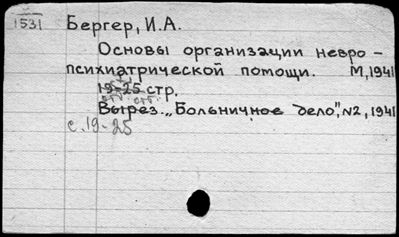 1531 Бергер, И.А.
Основы организации невро-
психиатрической помощи. М, 1941
19-25 стр.
Вырез. „Больничное дело", N2, 1941
с. 19-25